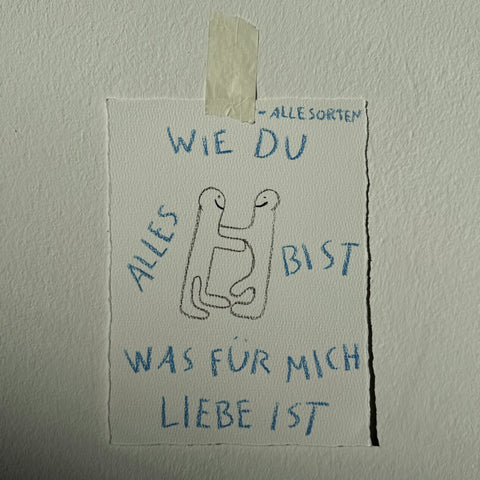 - ALLESORTEN
WIE DU
ALLES BIST
WAS FÜR MICH
LIEBE IST